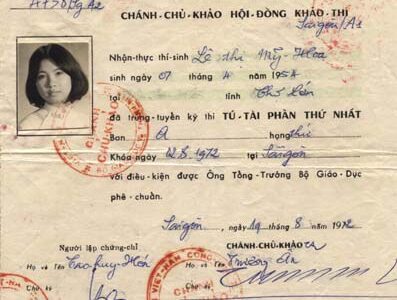 CHÁNH-CHỦ-KHẢO HỘI-ĐỒNG KHẢO-THÍ
Saigon/A1
Nhận-thực thí-sinh Lê thị Mỹ-Hoa
sinh ngày 07 tháng 4 năm 1954
tại tỉnh
đã trúng-tuyển kỳ thi TÚ-TÀI PHẦN THỨ NHẤT
Ban A hạng thứ
Khóa ngày 12.8.1972 tại Saigon
với điều-kiện được Ông Tổng-Trưởng Bộ Giáo-Dục
phê-chuẩn.
Saigon, ngày 19 tháng 8 năm 1972
Người lập chứng-chỉ CHÁNH-CHỦ-KHẢO
Họ và Tên Họ và Tên
Chữ ký Chữ ký
CHÁNH
CHỦ-KHẢO
VIỆT-NAM CỘNG